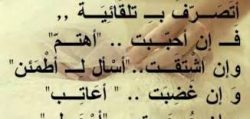 أتَصَرَّفُ بِـ تَلقَائِيَّة ,,
فَـ إن أحبَبت .. "أهتمّ"
وإن اشتَقت.. "أسْأل لـ أطْمَئن"
وَ إن غَضِبَت .. " أعَاتِب"